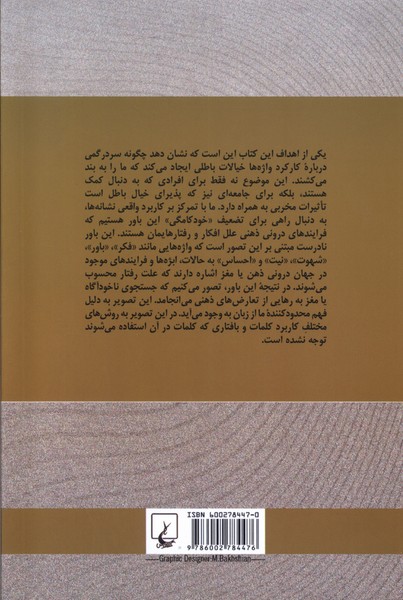 یکی از اهداف این کتاب این است که نشان دهد چگونه سردرگمی
دربارهٔ کارکرد واژه‌ها خیالات باطلی ایجاد می‌کند که ما را به بند
می‌کشند. این موضوع نه فقط برای افرادی که به دنبال کمک
هستند، بلکه برای جامعه‌ای نیز که پذیرای خیال باطل است
تأثیرات مخربی به همراه دارد. ما با تمرکز بر کاربرد واقعی نشانه‌ها،
به دنبال راهی برای تضعیف «خودکامگی» این باور هستیم که
فرایندهای درونی ذهنی علل افکار و رفتارهایمان هستند. این باور
نادرست مبتنی بر این تصور است که واژه‌هایی مانند «فکر»، «باور»،
«شهوت»، «نیت» و «احساس» به حالات، ابژه‌ها و فرایندهای موجود
در جهان درونی ذهن یا مغز اشاره دارند که علت رفتار محسوب
می‌شوند. در نتیجهٔ این باور، تصور می‌کنیم که جستجوی ناخودآگاه
یا مغز به رهایی از تعارض‌های ذهنی می‌انجامد. این تصویر به دلیل
فهم محدودکنندهٔ ما از زبان به وجود می‌آید. در این تصویر به روش‌های
مختلف کاربرد کلمات و بافتاری که کلمات در آن استفاده می‌شوند
توجه نشده است.
ISBN 600278447-0
9 786002 784476
Graphic Designer M.Bakhshian